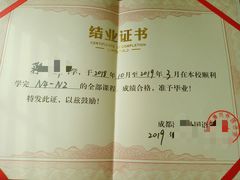 结业证书
CERTIFICATE OF COMPLETION
同学，于2018年10月至2019年3月在本校顺利
学完 N4-N2 的全部课程，成绩合格，准予毕业！
特发此证，以兹鼓励！
成都
2019年